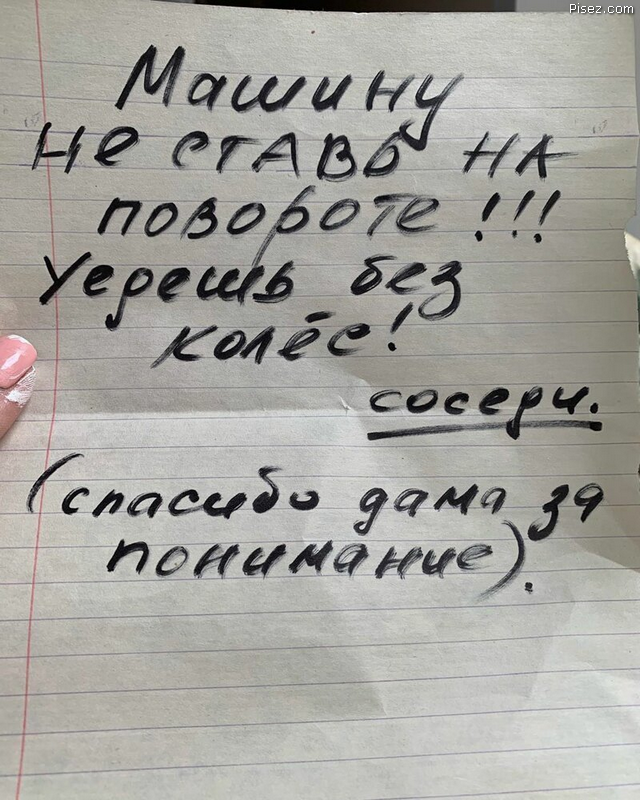 Pisez.com
Машину
не ставь на
повороте!!!
Уедешь без
колёс!
соседи.
(спасибо дама за
понимание).